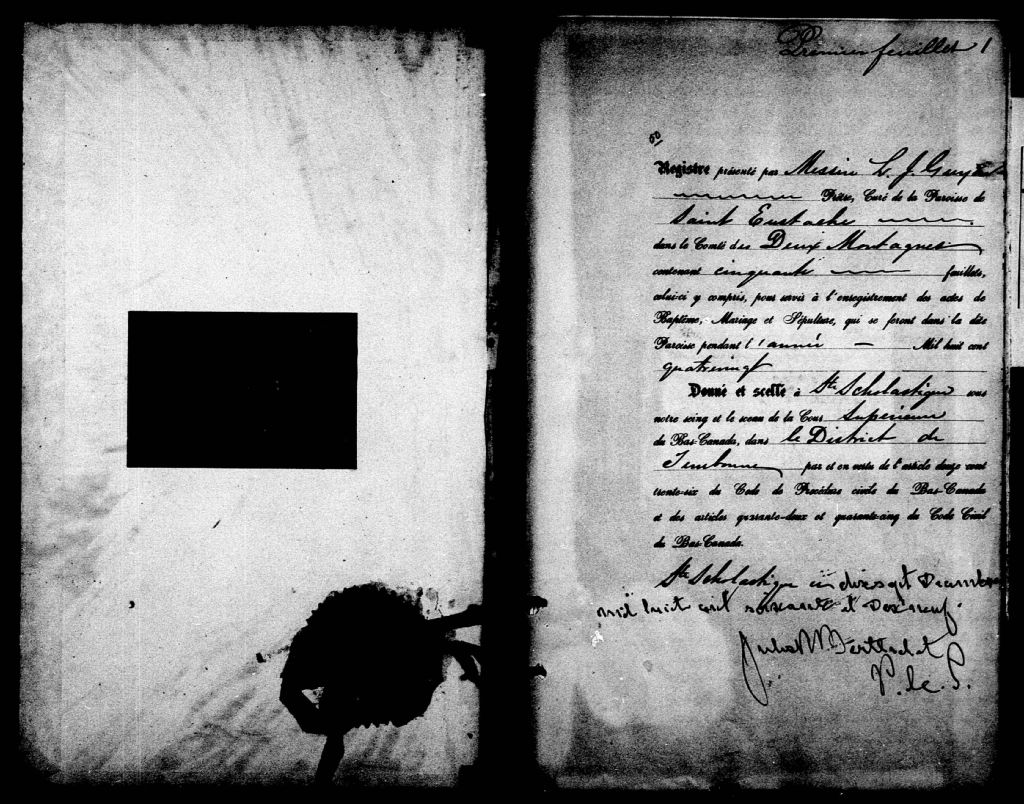 Premier feuillet 1
Registre présenté par Messire L. J. Guyon
Prêtre, Curé de la Paroisse de
Saint Eustache
dans le Comté des Deux Montagnes
contenant cinquante feuillets,
celui-ci y compris, pour servir à l'enregistrement des actes de
Baptême, Mariage et Sépulture, qui se feront dans la dite
Paroisse pendant l'année Mil huit cent
quatrevingt
Donné et scellé à Ste Scholastique sous
notre seing et le sceau de la Cour Supérieure
du Bas-Canada, dans le District de
Terrebonne par et en vertu de l'article douze cent
trente-six du Code de Procédure civile du Bas-Canada
et des articles quarante-deux et quarante-cinq du Code Civil
du Bas-Canada.
Ste Scholastique ce dixsept Décembre
mil huit cent soixante et dixneuf.
P. C. S.